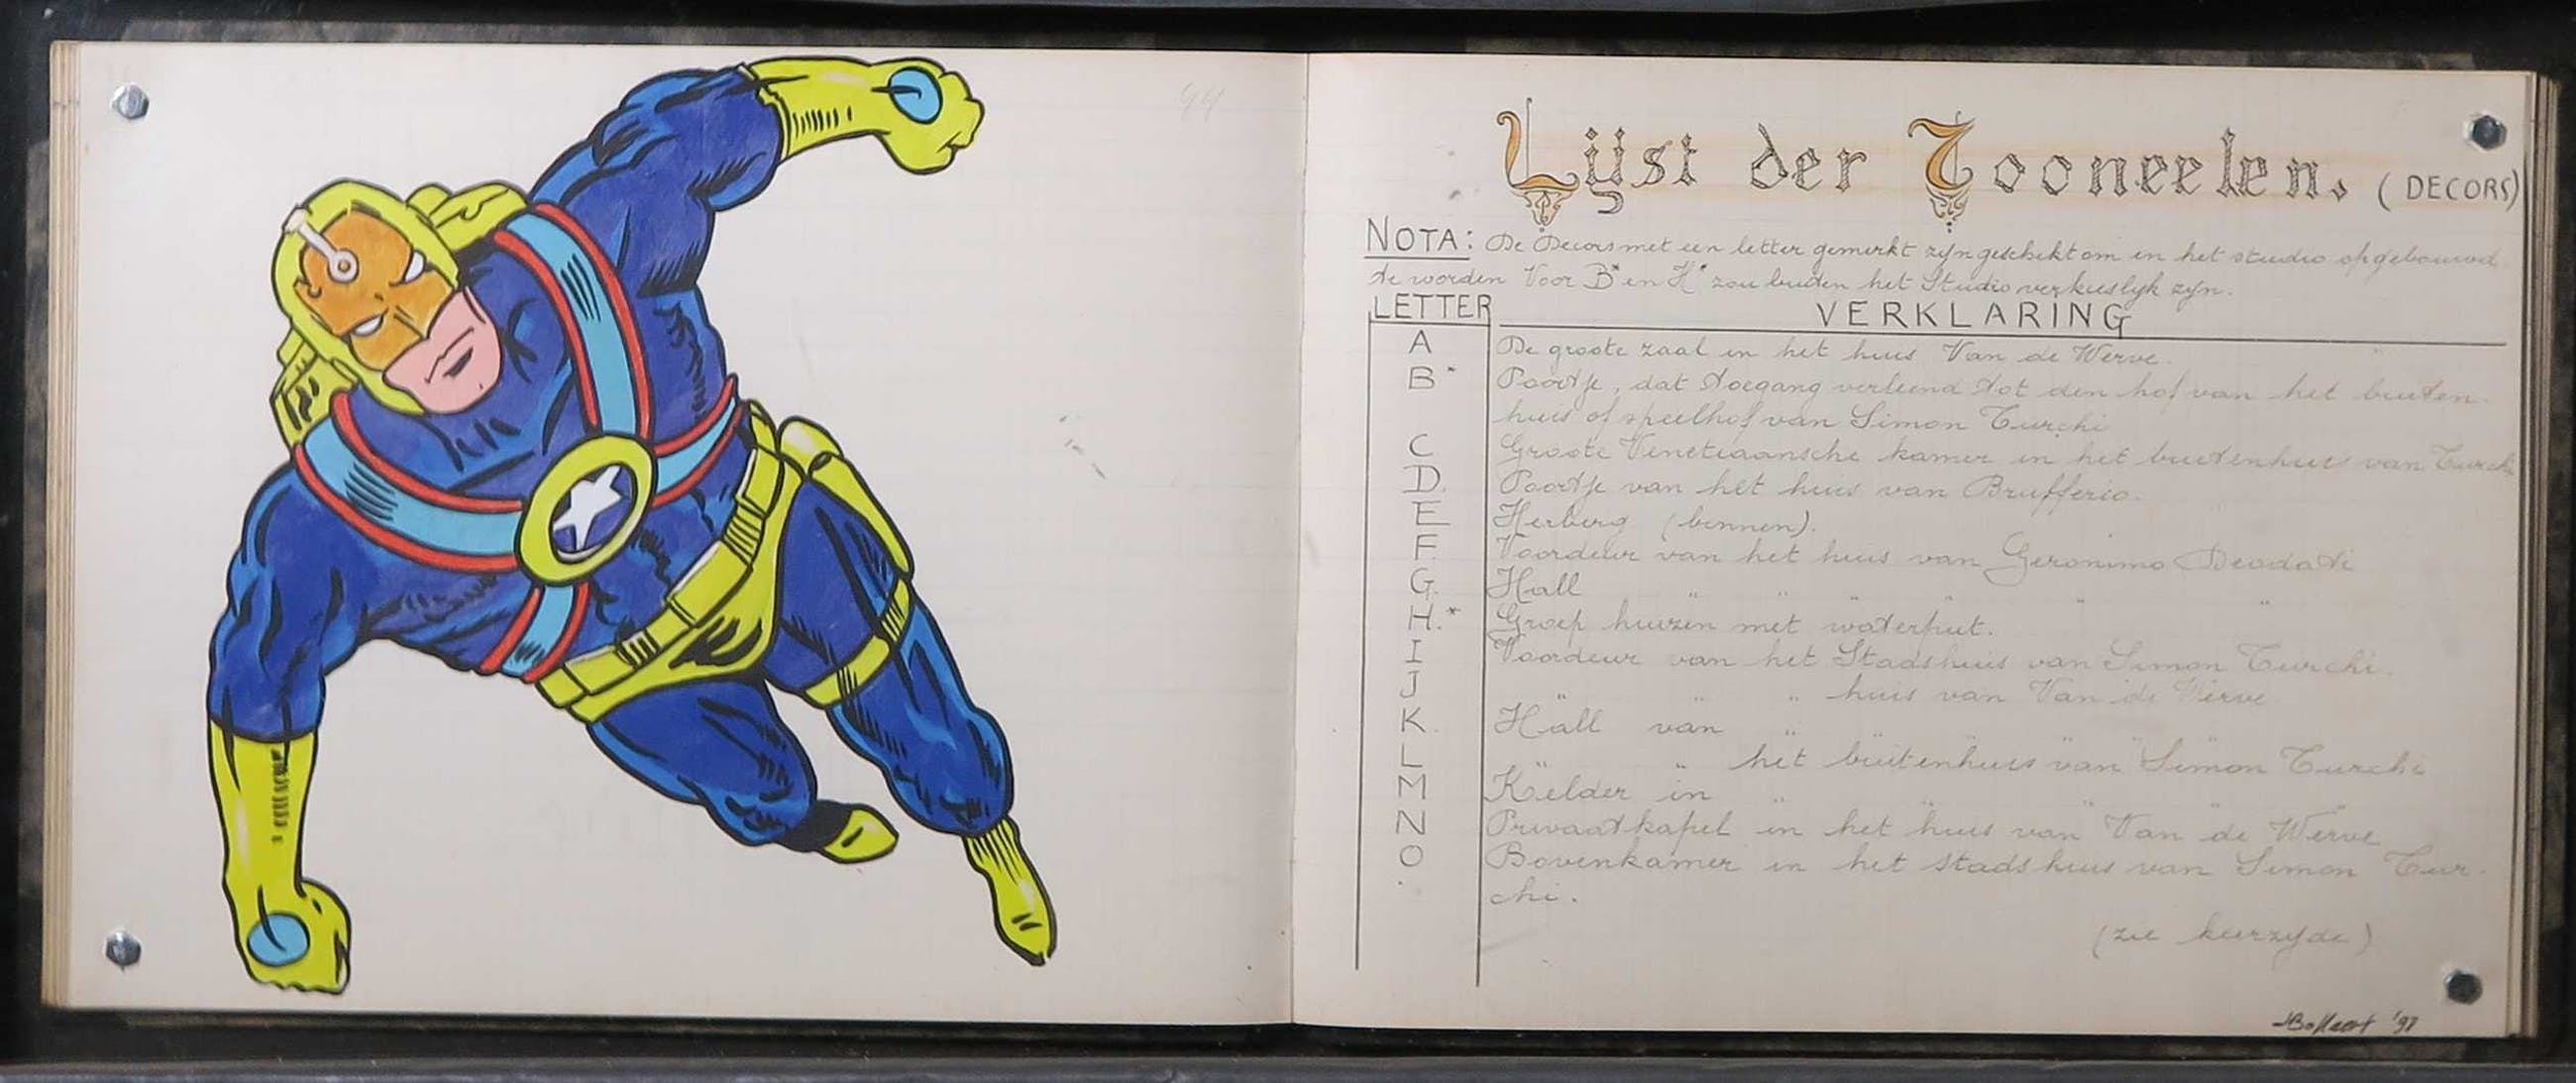 94
Lijst der Tooneelen. (DECORS)
NOTA: De Decors met een letter gemerkt zijn geschikt om in het studio opgebouwd
te worden Voor B* en H* zou buiten het Studio verkieslyk zyn.
LETTER VERKLARING
A De groote zaal in het huis Van de Werve.
B* Poortje, dat toegang verleend tot den hof van het buiten-
huis of speelhof van Simon Turchi
C Groote Venetiaansche kamer in het buitenhuis van Turchi
D. Poortje van het huis van Brufferio.
E Herberg (binnen).
F. Voordeur van het huis van Geronimo Deodati
G. Hall " " " " "
H.* Groep huizen met waterput.
I Voordeur van het Stadshuis van Simon Turchi.
J " " " huis van Van de Werve
K. Hall van " " " " "
L " " het buitenhuis van Simon Turchi
M Kelder in " " " " "
N Privaatkapel in het huis van Van de Werve
O Bovenkamer in het stadshuis van Simon Tur-
chi.
(zie keerzyde)
'97